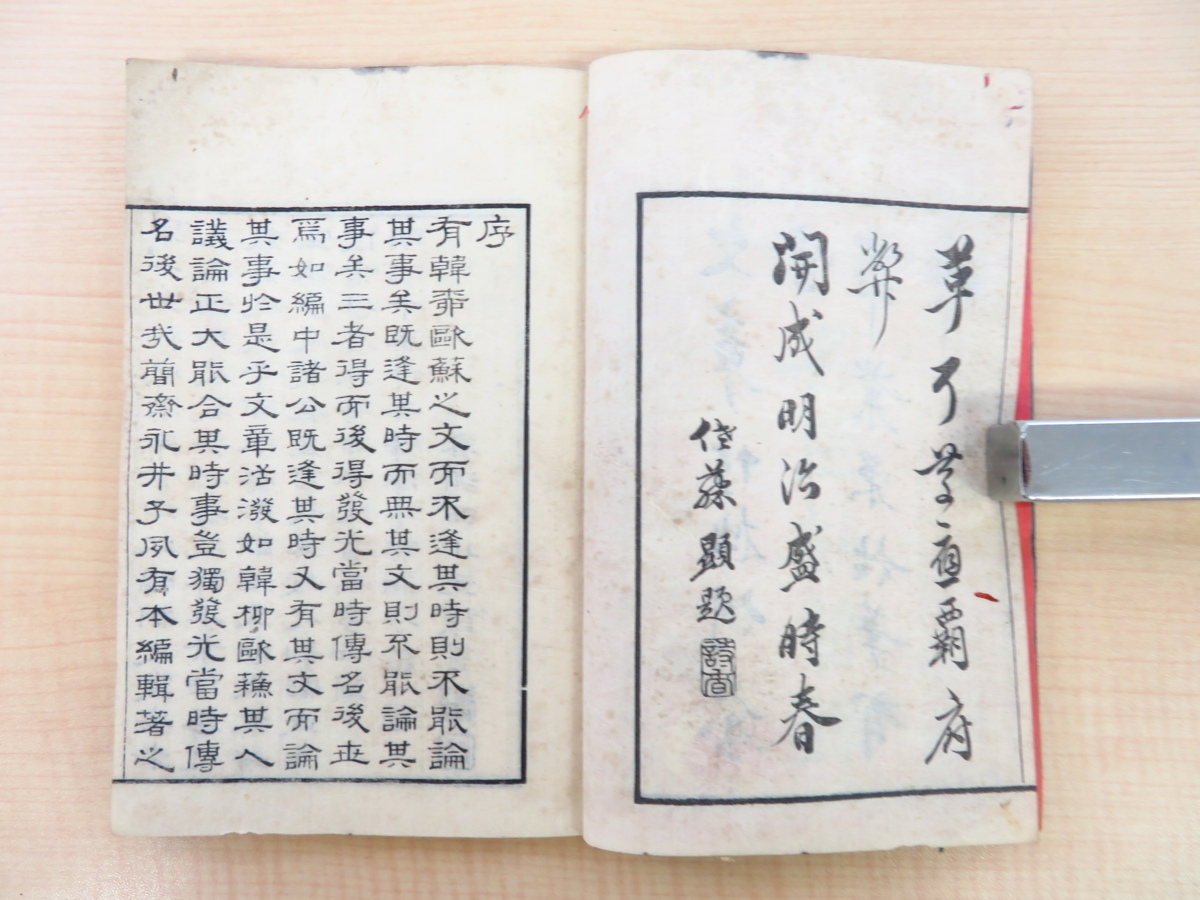 革了慶應覇府
弊
開成明治盛時春
佐藤顕題
序
有韓柳歐蘇之文而不逢其時則不能論
其事矣既逢其時而無其文則不能論其
事矣三者得而後得發光當時傳名後世
焉如編中諸公既逢其時又有其文而論
其事於是乎文章活潑如韓柳歐蘇其人
議論正大能合其時事豈獨發光當時傳
名後世哉簡齋永井子夙有本編輯著之